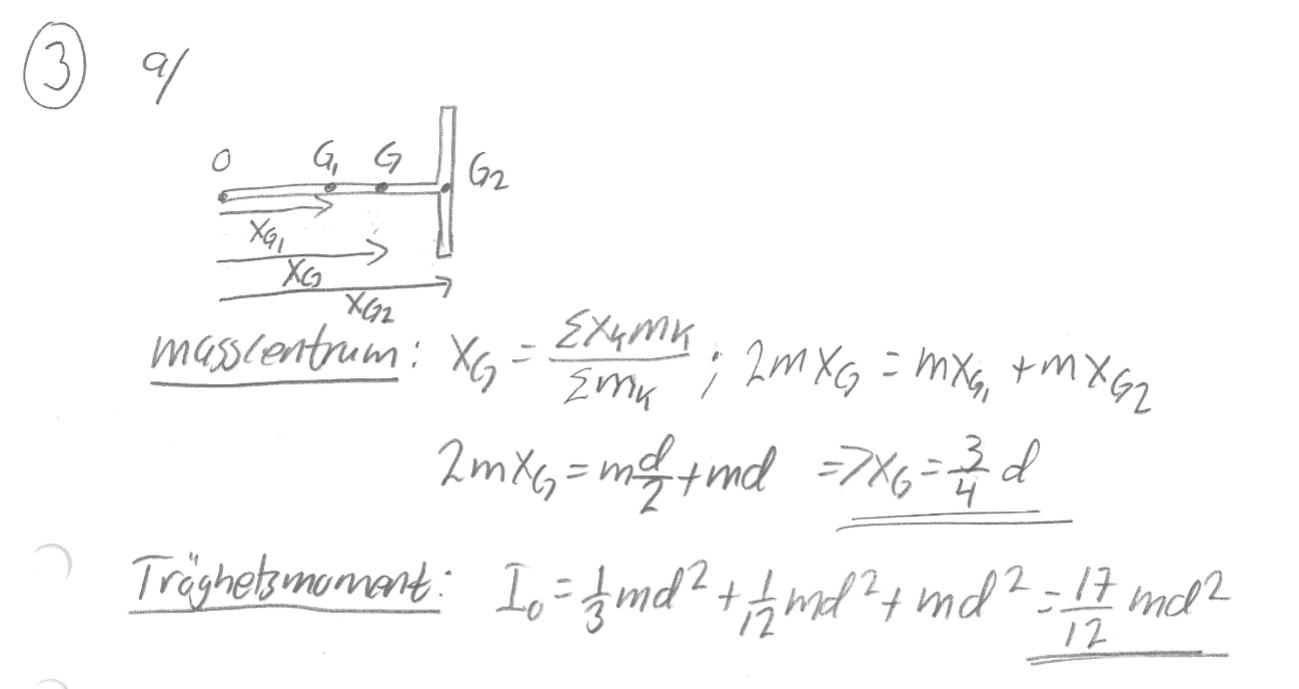 ③ a/
O G₁ G G₂
x_G₁
x_G
x_G2
masscentrum: x_G = Σx_k m_k / Σm_k ; 2m x_G = m x_G₁ + m x_G2
2m x_G = m d/2 + md => x_G = 3/4 d
Tröghetsmoment: I₀ = 1/3 md² + 1/12 md² + md² = 17/12 md²